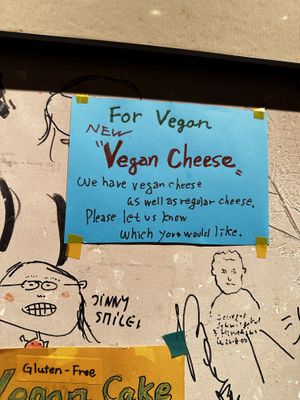 For Vegan
NEW
"Vegan Cheese„
We have vegan cheese
as well as regular cheese.
Please let us know
which you would like.
JINNY
SMILE,
Gluten-Free
Vegan Cake